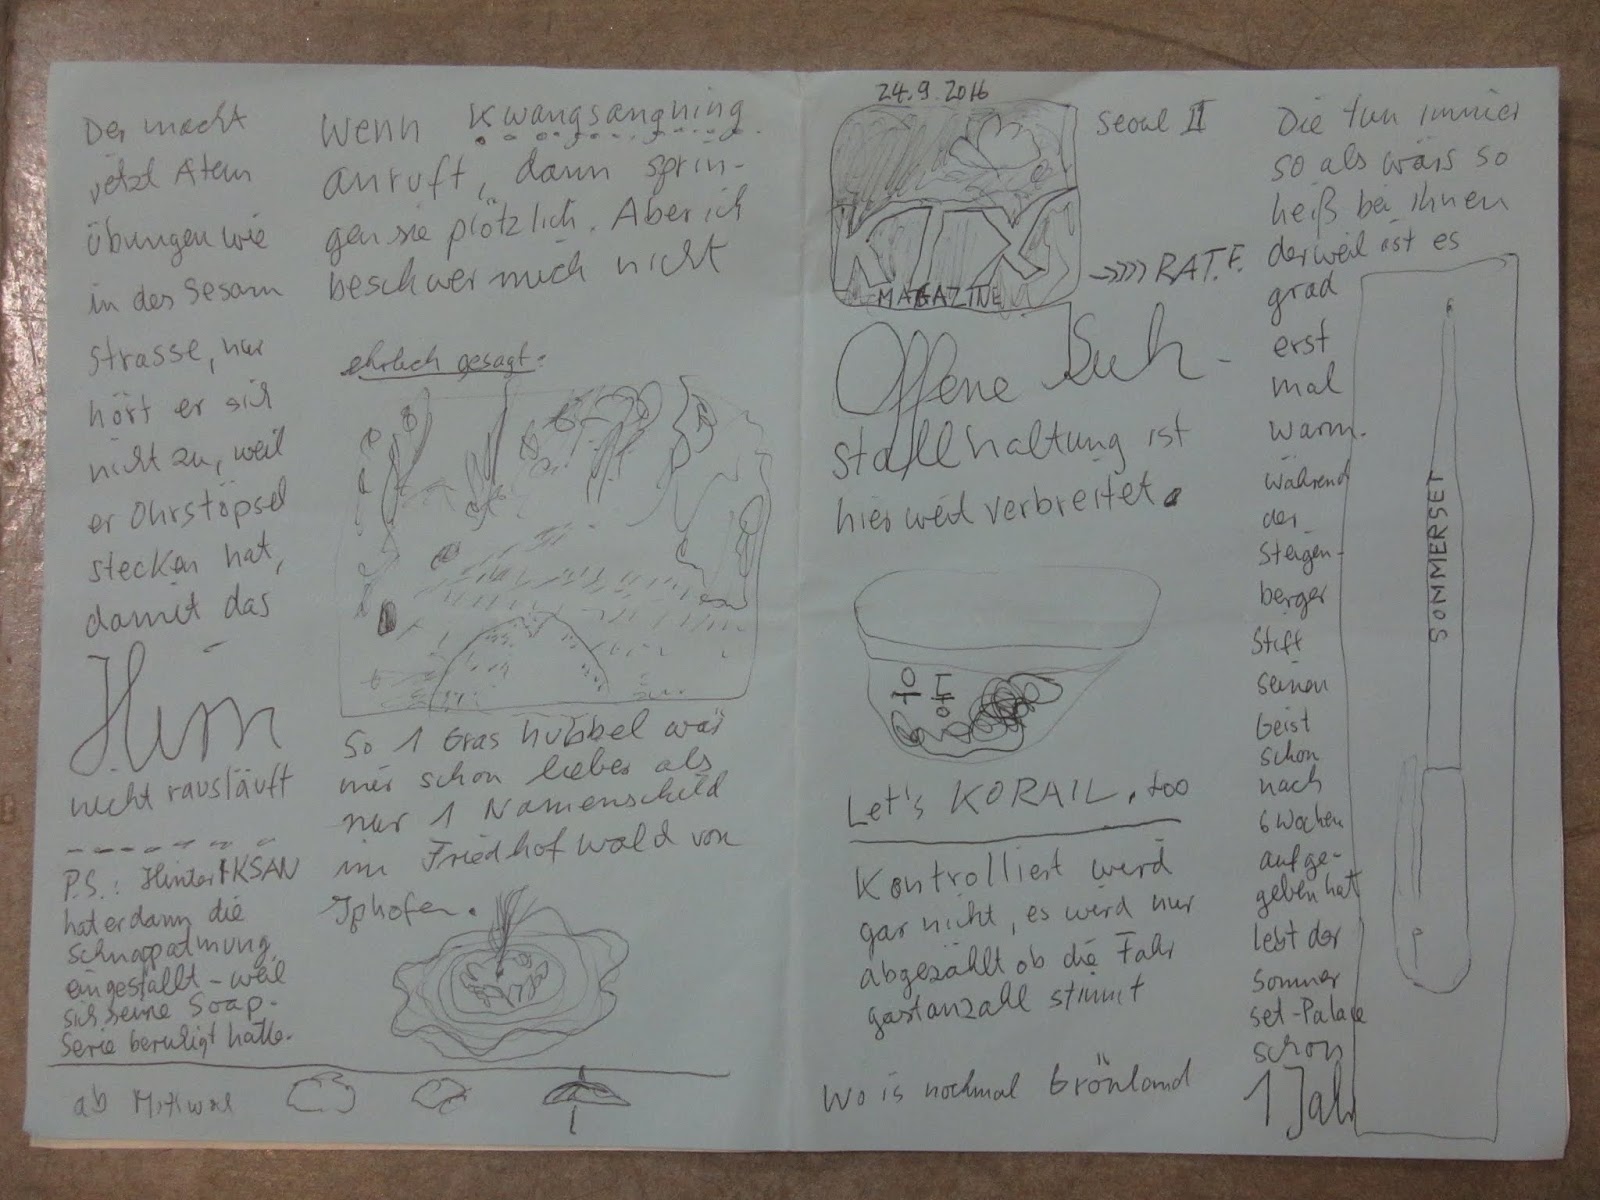 Der macht
jetzt Atem
übungen wie
in der Sesam
strasse, nur
hört er sich
nicht zu, weil
er Ohrstöpsel
stecken hat,
damit das
Hirn
nicht rausläuft
P.S.: Hinter IKSAN
hat er dann die
Schnappatmung
eingestellt - weil
sich seine Soap-
Serie beruhigt hatte.
Wenn Kwangsangning
anruft, dann sprin-
gen sie plötzlich. Aber ich
beschwer mich nicht
ehrlich gesagt:
So 1 Gras hubbel wär
mir schon lieber als
nur 1 Namenschild
im Friedhofwald von
Iphofen.
ab Mittwoch
24.9.2016
KTX
MAGAZINE
Seoul II
→»»» RAT.E.
Offene Kuh-
stallhaltung ist
hier weit verbreitet.
Let's KORAIL, too
Kontrolliert wird
gar nicht, es wird nur
abgezählt ob die Fahr
gastanzahl stimmt
Wo is nochmal Grönland
Die tun immer
so als wärs so
heiß bei ihnen
derweil ist es
grad
erst
mal
warm.
während
der
Steigen-
berger
Stift
seinen
Geist
schon
nach
6 Wochen
aufge-
geben hat
lebt der
Sommer
set-Palace
schon
1 Jahr
SOMMERSET